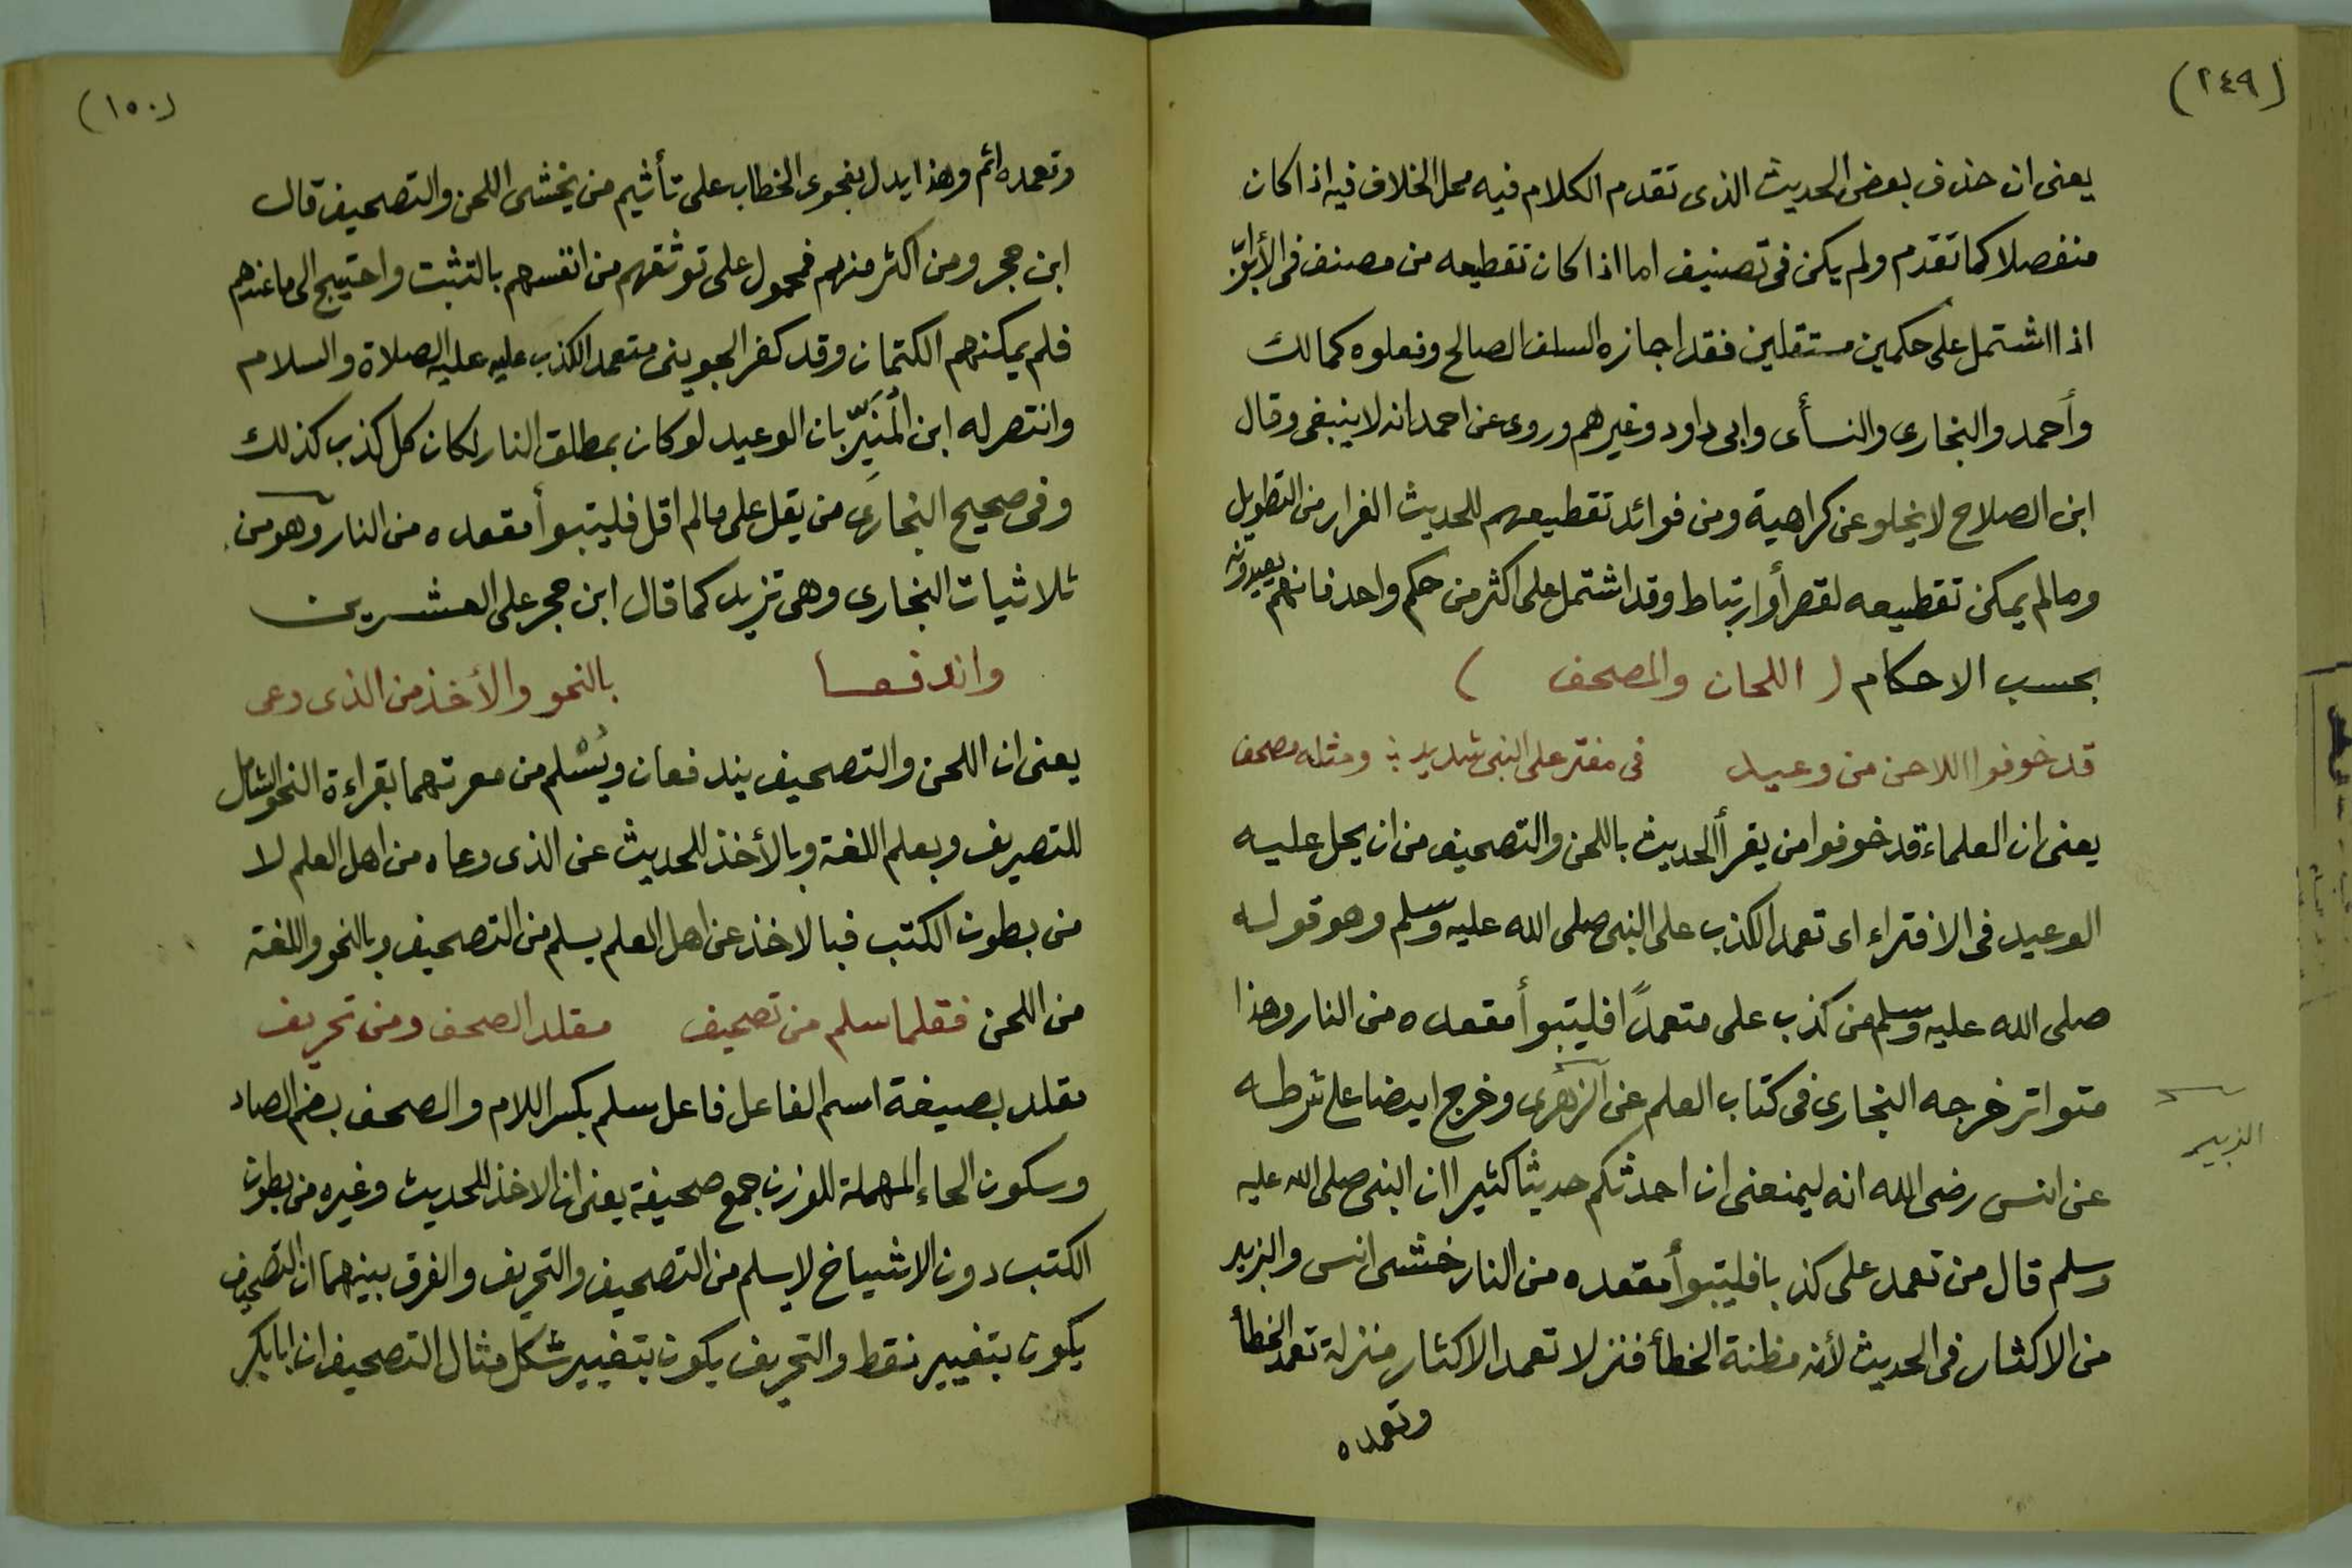 (٢٤٩)
يعنى ان حذف بعض الحديث الذى تقدم الكلام فيه محل الخلاف فيه اذا كان
منفصلا كما تقدم ولم يكن فى تصنيف اما اذا كان تقطيعه من مصنف فى الأبواب
اذا اشتمل على حكمين مستقلين فقد اجازه السلف الصالح وفعلوه كمالك
وأحمد والبخارى والنسأى وابى داود وغيرهم وروى عن احمد انه لا ينبغى وقال
ابن الصلاح لا يخلو عن كراهية ومن فوائد تقطيعهم للحديث الفرار من التطويل
وما لم يمكن تقطيعه لقصر أو ارتباط وقد اشتمل على اكثر من حكم واحد فانهم يعيدونه
بحسب الاحكام ( اللحان والمصحف )
قد خوفوا اللاحن من وعيد فى مفتر على النبى شديد ؛ ومثله مصحف
يعنى ان العلماء قد خوفوا من يقرأ الحديث باللحن والتصحيف من ان يحل عليه
الوعيد فى الافتراء اى تعمد الكذب على النبى صلى الله عليه وسلم وهو قوله
صلى الله عليه وسلم من كذب على متعمدًا فليتبوأ مقعده من النار وهذا
متواتر خرجه البخارى فى كتاب العلم عن الزهرى وخرج ايضا على شرطه
الزبير
عن انس رضى الله انه ليمنعنى ان احدثكم حديثا كثيرا ان النبى صلى الله عليه
وسلم قال من تعمد على كذبا فليتبوأ مقعده من النار خشى انس والزبير
من الاكثار فى الحديث لأنه مظنة الخطأ فنزلا تعمد الاكثار منزلة تعمد الخطأ
وتعمده
(١٥٠)
وتعمده اثم وهذا يدل بفحوى الخطاب على تأثيم من يخشى اللحن والتصحيف قال
ابن حجر ومن اكثر منهم فمحمول على توثقهم من انفسهم بالتثبت واحتيج الى ما عندهم
فلم يمكنهم الكتمان وقد كفر الجوينى متعمد الكذب عليه عليه الصلاة والسلام
وانتصر له ابن المُنَيِّر بان الوعيد لو كان بمطلق النار لكان كل كذب كذلك
وفى صحيح البخارى من يقل على ما لم اقل فليتبوأ مقعده من النار وهو من
ثلاثيات البخارى وهى تزيد كما قال ابن حجر على العشرين
واندفعا بالنحو والأخذ من الذى وعى
يعنى ان اللحن والتصحيف يندفعان ويُسْلم من معرتهما بقراءة النحو الشامل
للتصريف وبعلم اللغة وبالأخذ للحديث عن الذى وعاه من اهل العلم لا
من بطون الكتب فبالاخذ عن اهل العلم يسلم من التصحيف وبالنحو واللغة
من اللحن فقلما سلم من تصحيف مقلد الصحف ومن تحريف
مقلد بصيغة اسم الفاعل فاعل سلم بكسر اللام والصحف بضم الصاد
وسكون الحاء المهملة للوزن جمع صحيفة يعنى ان الاخذ للحديث وغيره من بطون
الكتب دون الاشياخ لا يسلم من التصحيف والتحريف والفرق بينهما ان التصحيف
يكون بتغيير نقط والتحريف يكون بتغيير شكل مثال التصحيف ان ابا بكر